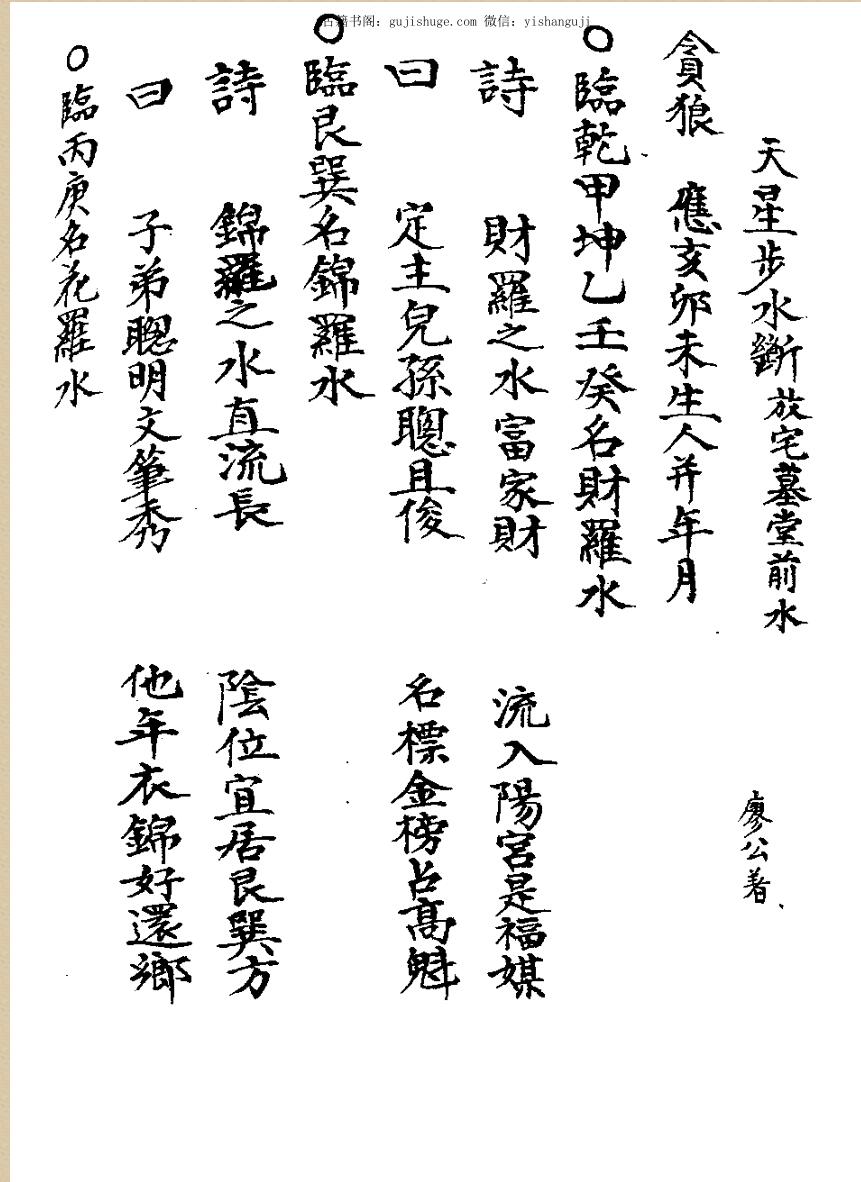 古籍书阁：gujishuge.com 微信：yishanguji
天星步水斷放宅墓堂前水 廖公著
貪狼 應亥卯未生人并年月
○臨乾甲坤乙壬癸名財羅水
詩 財羅之水富家財 流入陽宮是福媒
曰 定主兒孫聰且俊 名標金榜占高魁
○臨艮巽名錦羅水
詩 錦羅之水直流長 陰位宜居艮巽方
曰 子弟聰明文筆秀 他年衣錦好還鄉
○臨丙庚名花羅水